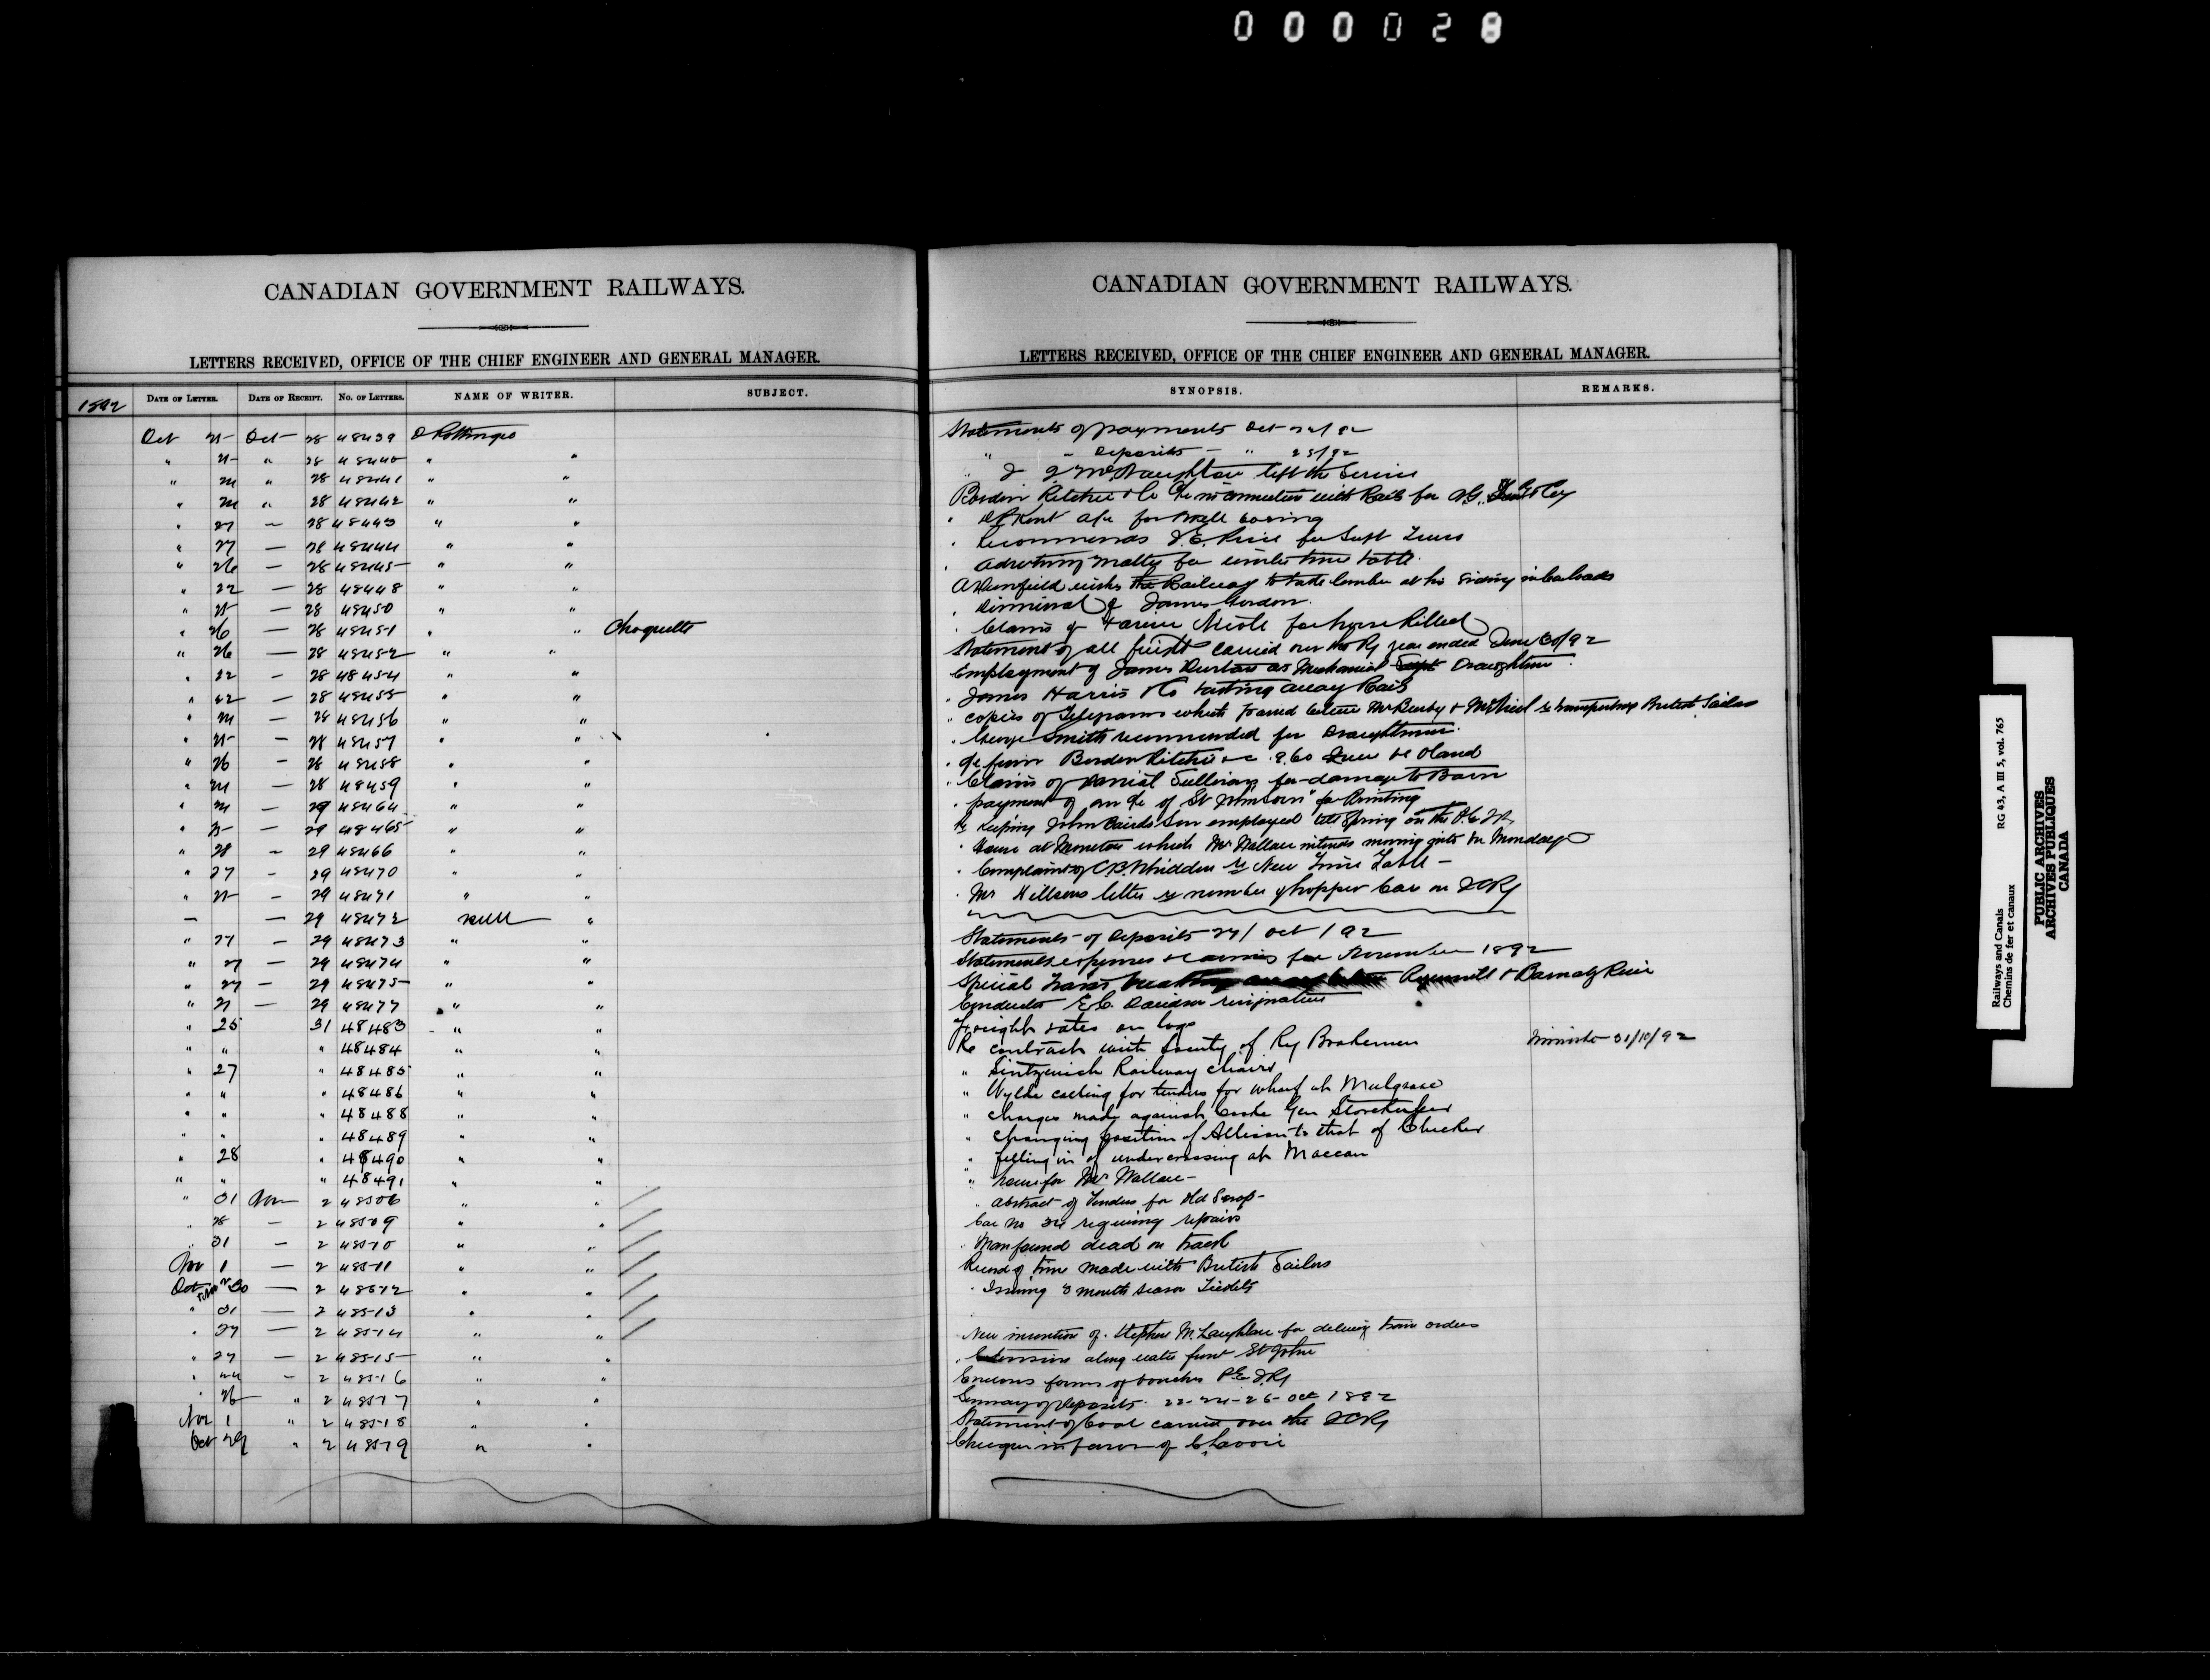 000028
CANADIAN GOVERNMENT RAILWAYS.
LETTERS RECEIVED, OFFICE OF THE CHIEF ENGINEER AND GENERAL MANAGER.
1892 DATE OF LETTER. DATE OF RECEIPT. NO. OF LETTERS. NAME OF WRITER. SUBJECT.
Oct 25 Oct 28 48439 D Pottinger
" 25 " 28 48440 " "
" 24 " 28 48441 " "
" 24 " 28 48442 " "
" 27 — 28 48443 " "
" 27 — 28 48444 " "
" 26 — 28 48445 " "
" 22 — 28 48448 " "
" 25 — 28 48450 " "
" 26 — 28 48451 " " Choquette
" 26 — 28 48452 " "
" 22 — 28 48454 " "
" 22 — 28 48455 " "
" 24 — 28 48456 " "
" 25 — 28 48457 " "
" 26 — 28 48458 " "
" 24 — 28 48459 " "
" 24 — 29 48464 " "
" 25 — 29 48465 " "
" 28 — 29 48466 " "
" 27 — 29 48470 " "
" 25 — 29 48471 " "
— — 29 48472 null "
" 27 — 29 48473 " "
" 27 — 29 48474 " "
" 27 — 29 48475 " "
" 27 — 29 48477 " "
" 25 31 48483 " "
" " " 48484 " "
" 27 " 48485 " "
" " " 48486 " "
" " " 48488 " "
" " " 48489 " "
" 28 " 48490 " "
" " " 48491 " "
" 31 Nov 2 48506 " "
" 28 — 2 48509 " "
" 31 — 2 48510 " "
Nov 1 — 2 48511 " "
Oct 30 — 2 48512 " "
" 31 — 2 48513 " "
" 27 — 2 48514 " "
" 27 — 2 48515 " "
" 24 — 2 48516 " "
" 26 " 2 48517 " "
Nov 1 " 2 48518 " "
Oct 29 " 2 48519 " "
CANADIAN GOVERNMENT RAILWAYS.
LETTERS RECEIVED, OFFICE OF THE CHIEF ENGINEER AND GENERAL MANAGER.
SYNOPSIS. REMARKS.
Statements of payments Oct
" " Deposits — " 25/92
" McNaughton left the Service
Borden Ritchie & Co in connection with Rails for
" Kent a/c for Well boring
" Recommends Price for Supt
" Advertising matter for winter time table
wishes the Railway to take lumber at his siding in carloads
" Dismissal of James Gordon
" Claims of Nicole for horse Killed
Statement of all freight carried over the Ry year ended June 30/92
Employment of James as Mechanical Draughtsman
" James Harris & Co taking away Rails
" copies of Telegrams which passed between & re transporting British Sailors
" George Smith recommended for Draughtsman
" favor Borden Ritchie
" Claims of Daniel Sullivan for damage to Barn
" payment of an a/c of St John for Printing
Re keeping John Bairds Son employed till Spring on the
" House at Moncton which Mr Wallace intends moving into on Monday
" Complaint of C.B. Whidden re New Time Table —
" Mr letter re number of hopper Cars on ICRy
Statements of Deposits 27/ Oct / 92
Statements expenses & earnings for November 1892
Special Train & Barnaby River
Conductor E.C. Davidson resignation
Freight rates on logs
Re contract with Society of Ry Brakemen Minister 31/10/92
" Railway chairs
" Wylde calling for tenders for wharf at Mulgrave
" Charges made against Cooke Gen Storekeeper
" Changing position of Allison to that of Checker
" filling in of undercrossing at Maccan
" house for Mr Wallace —
" abstract of Tenders for Old Scrap —
Car No 34 requiring repairs
" Man found dead on track
Record of time made with British Sailors
" Issuing 3 month season Tickets
New invention of Stephen McLaughlin for delivering train orders
" Extension along water front St John
Encloses forms of vouchers P.E.I.Ry
Summary of Deposits 22-24-26- Oct 1892
Statement of Coal carried over the ICRy
Cheque in favor of C Lavoie
Railways and Canals RG 43, A III 5, vol. 765
Chemins de fer et canaux
PUBLIC ARCHIVES
ARCHIVES PUBLIQUES
CANADA